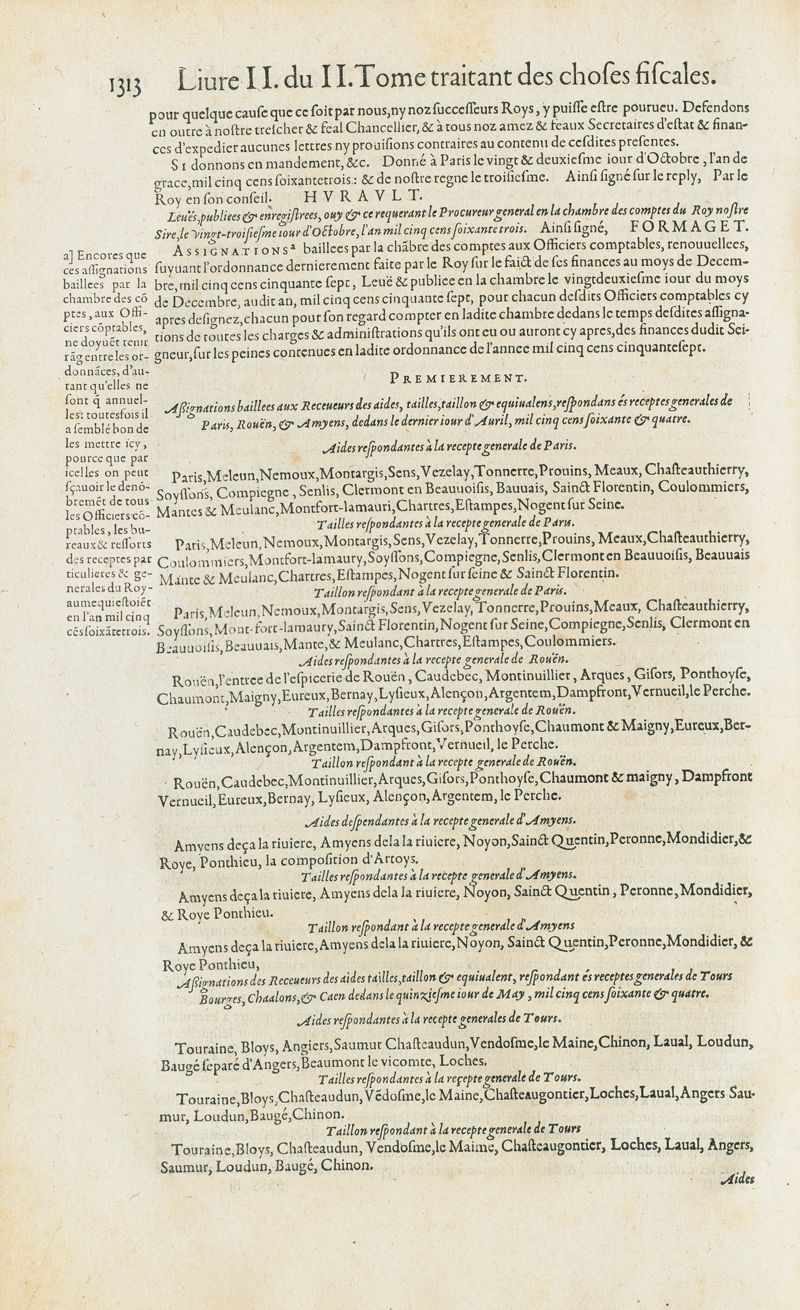 1313 Liure II. du II. Tome traitant des choſes fiſcales.
pour quelque cauſe que ce ſoit par nous, ny noz ſucceſſeurs Roys, y puiſſe eſtre pourueu. Defendons
en outre à noſtre treſcher & feal Chancellier, & à tous noz amez & feaux Secretaires d'eſtat & finan-
ces d'expedier aucunes lettres ny prouiſions contraires au contenu de ceſdites preſentes.
SI donnons en mandement, &c. Donné à Paris le vingt & deuxieſme iour d'Octobre, l'an de
grace, mil cinq cens ſoixante trois.: & de noſtre regne le troiſieſme. Ainſi ſigné ſur le reply, Par le
Roy en ſon conſeil. HVRAVLT.
Leuës, publiees & enregiſtrees, ouy & ce requerant le Procureur general en la chambre des comptes du Roy noſtre
Sire, le vingt-troiſieſme iour d'Octobre, l'an mil cinq cens ſoixante trois. Ainſi ſigné, FORMAGET.
ASSIGNATIONS ª baillees par la chãbre des comptes aux Officiers comptables, renouuellees,
ſuyuant l'ordonnance dernierement faite par le Roy ſur le faict de ſes finances au moys de Decem-
bre, mil cinq cens cinquante ſept, Leuë & publiee en la chambre le vingtdeuxieſme iour du moys
de Decembre, audit an, mil cinq cens cinquante ſept, pour chacun deſdits Officiers comptables cy
apres deſignez, chacun pour ſon regard compter en ladite chambre dedans le temps deſdites aſſigna-
tions de toutes les charges & adminiſtrations qu'ils ont eu ou auront cy apres, des finances dudit Sei-
gneur, ſur les peines contenues en ladite ordonnance de l'annee mil cinq cens cinquante ſept.
a] Encores que
ces aſſignations
baillees par la
chambre des cõ
ptes, aux Offi-
ciers cõptables,
ne doyuẽt tenir
rãg entre les or-
donnãces, d'au-
tant qu'elles ne
ſont q̃ annuel-
les: toutesfois il
a ſemblé bon de
les mettre icy,
pource que par
icelles on peut
ſçauoir le denõ-
bremẽt de tous
les Officiers cõ-
ptables, les bu-
reaux & reſſorts
des receptes par
ticulieres & ge-
nerales du Roy-
aume qui eſtoiẽt
en l'an mil cinq
cẽs ſoixãte trois.
PREMIEREMENT.
Aſſignations baillees aux Receueurs des aides, tailles, taillon & equiualens, reſpondans és receptes generales de
Paris, Rouën, & Amyens, dedans le dernier iour d'Auril, mil cinq cens ſoixante & quatre.
Aides reſpondantes à la recepte generale de Paris.
Paris, Meleun, Nemoux, Montargis, Sens, Vezelay, Tonnerre, Prouins, Meaux, Chaſteauthierry,
Soyſſons, Compiegne, Senlis, Clermont en Beauuoiſis, Bauuais, Sainct Florentin, Coulommiers,
Mantes & Meulanc, Montfort-lamauri, Chartres, Eſtampes, Nogent ſur Seine.
Tailles reſpondantes à la recepte generale de Paris.
Paris, Meleun, Nemoux, Montargis, Sens, Vezelay, Tonnerre, Prouins, Meaux, Chaſteauthierry,
Coulommiers, Montfort-lamaury, Soyſſons, Compiegne, Senlis, Clermont en Beauuoiſis, Beauuais
Mante & Meulanc, Chartres, Eſtampes, Nogent ſur ſeine & Sainct Florentin.
Taillon reſpondant à la recepte generale de Paris.
Paris, Meleun, Nemoux, Montargis, Sens, Vezelay, Tonnerre, Prouins, Meaux, Chaſteauthierry,
Soyſſons, Mont-fort-lamaury, Sainct Florentin, Nogent ſur Seine, Compiegne, Senlis, Clermont en
Beauuoiſis, Beauuais, Mante, & Meulanc, Chartres, Eſtampes, Coulommiers.
Aides reſpondantes à la recepte generale de Rouën.
Rouën, l'entree de l'eſpicerie de Rouën, Caudebec, Montinuillier, Arques, Giſors, Ponthoyſe,
Chaumont, Maigny, Eureux, Bernay, Lyſieux, Alençon, Argentem, Dampfront, Vernueil, le Perche.
Tailles reſpondantes à la recepte generale de Rouën.
Rouën, Caudebec, Montinuillier, Arques, Giſors, Ponthoyſe, Chaumont & Maigny, Eureux, Ber-
nay, Lyſieux, Alençon, Argentem, Dampfront, Vernueil, le Perche.
Taillon reſpondant à la recepte generale de Rouën.
Rouën, Caudebec, Montinuillier, Arques, Giſors, Ponthoyſe, Chaumont & maigny, Dampfront
Vernueil, Eureux, Bernay, Lyſieux, Alençon, Argentem, le Perche.
Aides deſpendantes à la recepte generale d'Amyens.
Amyens deça la riuiere, Amyens dela la riuiere, Noyon, Sainct Quentin, Peronne, Mondidier, &
Roye, Ponthieu, la compoſition d'Artoys.
Tailles reſpondantes à la recepte generale d'Amyens.
Amyens deça la riuiere, Amyens dela la riuiere, Noyon, Sainct Quentin, Peronne, Mondidier,
& Roye Ponthieu.
Taillon reſpondant à la recepte generale d'Amyens
Amyens deça la riuiere, Amyens dela la riuiere, Noyon, Sainct Quentin, Peronne, Mondidier, &
Roye Ponthieu,
Aſſignations des Receueurs des aides tailles, taillon & equiualent, reſpondant és receptes generales de Tours
Bourges, Chaalons, & Caen dedans le quinzieſme iour de May, mil cinq cens ſoixante & quatre.
Aides reſpondantes à la recepte generales de Tours.
Touraine, Bloys, Angiers, Saumur Chaſteaudun, Vendoſme, le Maine, Chinon, Laual, Loudun,
Baugé ſeparé d'Angers, Beaumont le vicomte, Loches.
Tailles reſpondantes à la reçepte generale de Tours.
Touraine, Bloys, Chaſteaudun, Vẽdoſme, le Maine, Chaſteaugontier, Loches, Laual, Angers Sau-
mur, Loudun, Baugé, Chinon.
Taillon reſpondant à la recepte generale de Tours
Touraine, Bloys, Chaſteaudun, Vendoſme, le Maine, Chaſteaugontier, Loches, Laual, Angers,
Saumur, Loudun, Baugé, Chinon.
Aides